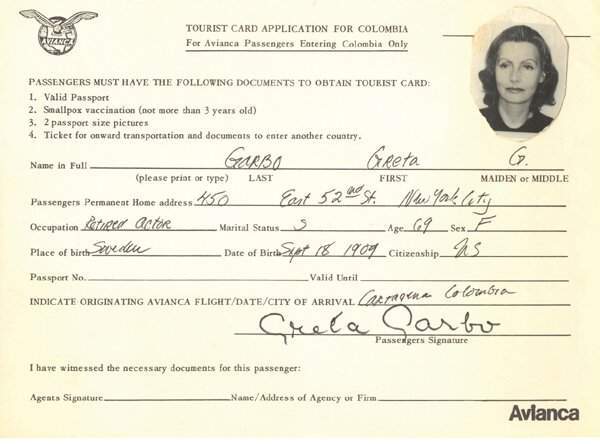 AVIANCA
TOURIST CARD APPLICATION FOR COLOMBIA
For Avianca Passengers Entering Colombia Only
PASSENGERS MUST HAVE THE FOLLOWING DOCUMENTS TO OBTAIN TOURIST CARD:
1. Valid Passport
2. Smallpox vaccination (not more than 3 years old)
3. 2 passport size pictures
4. Ticket for onward transportation and documents to enter another country.
Name in Full GARBO Greta G.
(please print or type) LAST FIRST MAIDEN or MIDDLE
Passengers Permanent Home address 450 East 52nd St. New York City
Occupation Retired Actor Marital Status S Age 69 Sex F
Place of birth Sweden Date of Birth Sept 18 1909 Citizenship US
Passport No. Valid Until
INDICATE ORIGINATING AVIANCA FLIGHT/DATE/CITY OF ARRIVAL Cartagena Colombia
Greta Garbo
Passengers Signature
I have witnessed the necessary documents for this passenger:
Agents Signature Name/Address of Agency or Firm
Avianca